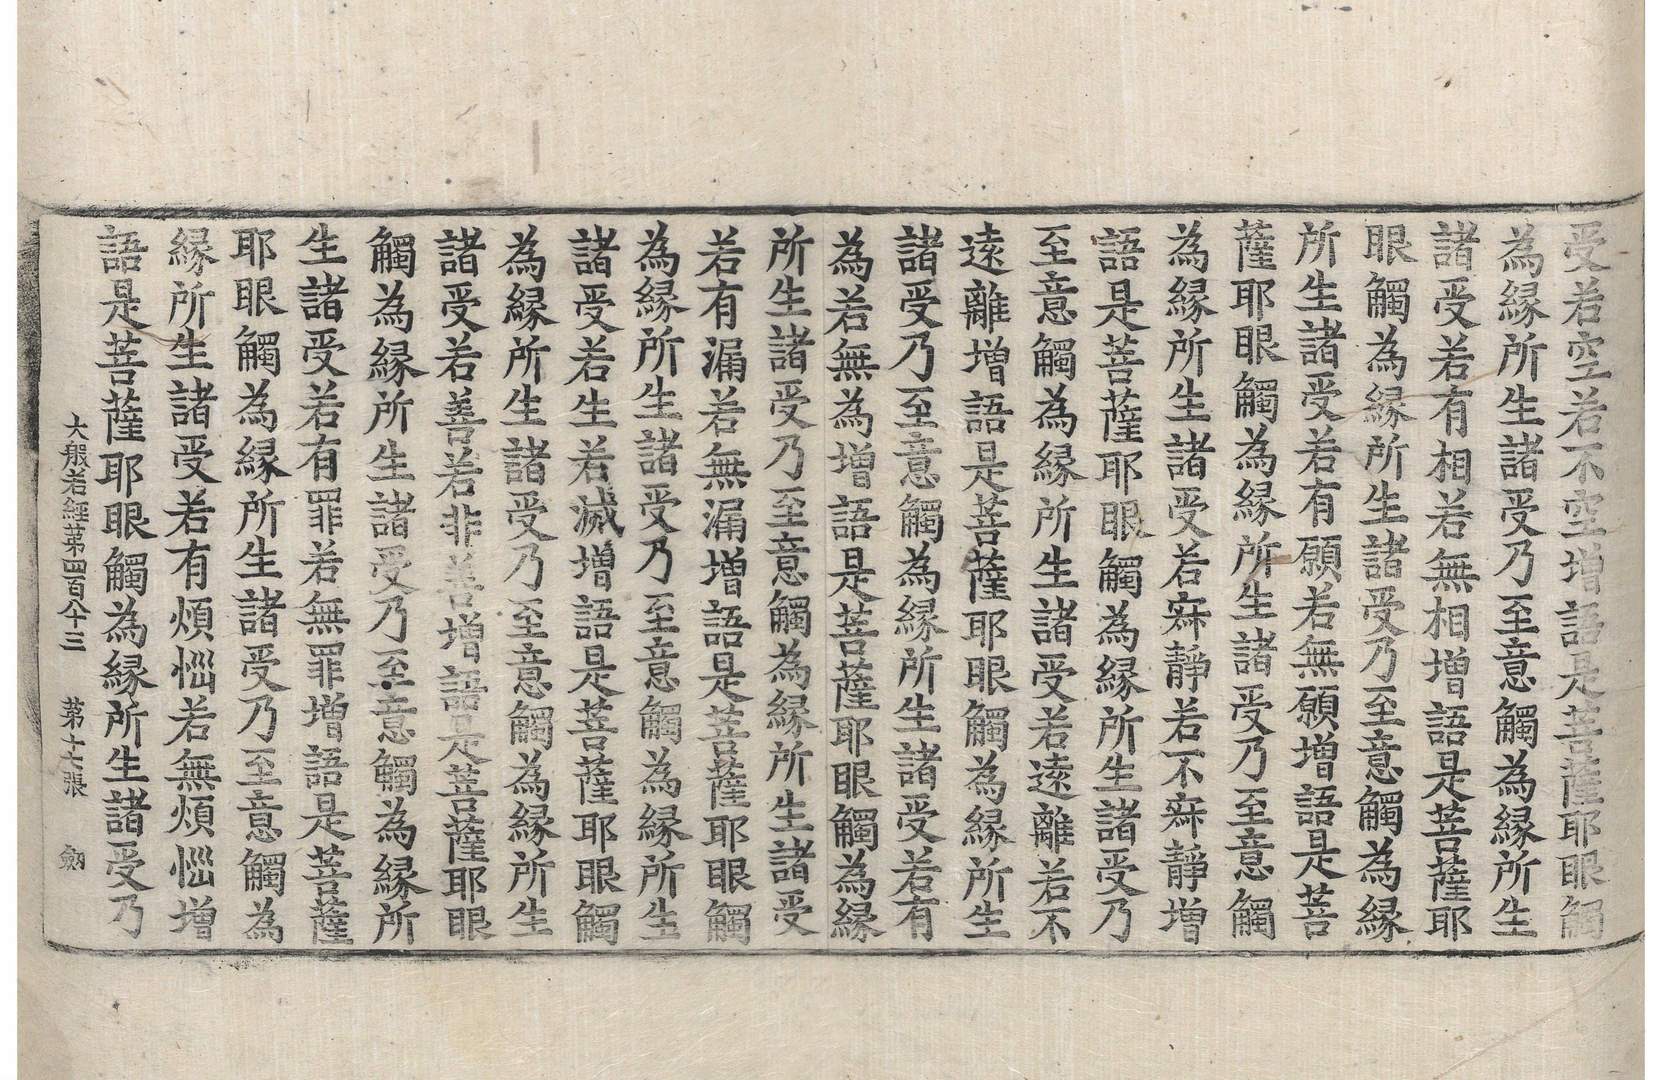 受若空若不空增語是菩薩耶眼觸
為緣所生諸受乃至意觸為緣所生
諸受若有相若無相增語是菩薩耶
眼觸為緣所生諸受乃至意觸為緣
所生諸受若有願若無願增語是菩
薩耶眼觸為緣所生諸受乃至意觸
為緣所生諸受若寂靜若不寂靜增
語是菩薩耶眼觸為緣所生諸受乃
至意觸為緣所生諸受若遠離若不
遠離增語是菩薩耶眼觸為緣所生
諸受乃至意觸為緣所生諸受若有
為若無為增語是菩薩耶眼觸為緣
所生諸受乃至意觸為緣所生諸受
若有漏若無漏增語是菩薩耶眼觸
為緣所生諸受乃至意觸為緣所生
諸受若生若滅增語是菩薩耶眼觸
為緣所生諸受乃至意觸為緣所生
諸受若善若非善增語是菩薩耶眼
觸為緣所生諸受乃至意觸為緣所
生諸受若有罪若無罪增語是菩薩
耶眼觸為緣所生諸受乃至意觸為
緣所生諸受若有煩惱若無煩惱增
語是菩薩耶眼觸為緣所生諸受乃
大般若經第四百八十三 第十七張 劒